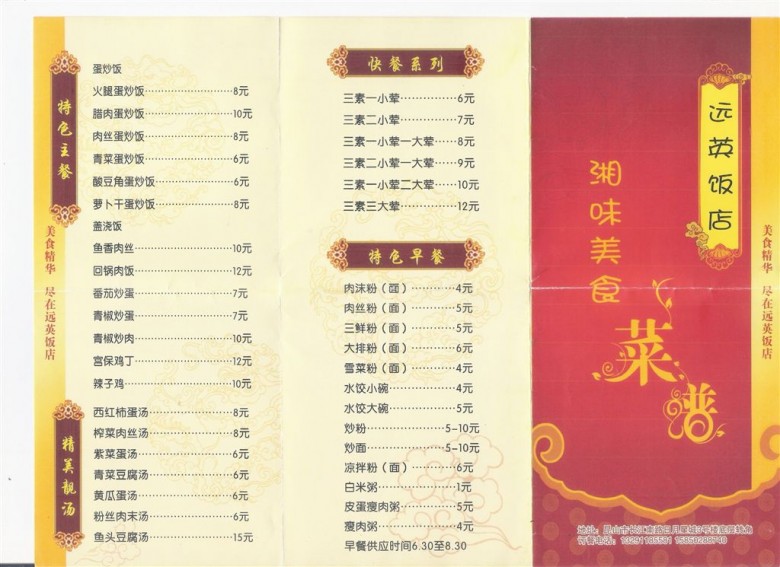 特色主餐
蛋炒饭
火腿蛋炒饭……………………8元
腊肉蛋炒饭……………………10元
肉丝蛋炒饭……………………8元
青菜蛋炒饭……………………6元
酸豆角蛋炒饭…………………6元
萝卜干蛋炒饭…………………8元
盖浇饭
鱼香肉丝………………………10元
回锅肉饭………………………12元
番茄炒蛋………………………7元
青椒炒蛋………………………7元
青椒炒肉………………………10元
宫保鸡丁………………………12元
辣子鸡…………………………10元
精美靓汤
西红柿蛋汤……………………8元
榨菜肉丝汤……………………8元
紫菜蛋汤………………………6元
青菜豆腐汤……………………6元
黄瓜蛋汤………………………6元
粉丝肉末汤……………………6元
鱼头豆腐汤……………………15元
美食精华 尽在远英饭店
快餐系列
三素一小荤……………6元
三素二小荤……………7元
三素一小荤一大荤……8元
三素二小荤一大荤……9元
三素一小荤二大荤……10元
三素三大荤……………12元
特色早餐
肉沫粉（面）…………4元
肉丝粉（面）…………5元
三鲜粉（面）…………5元
大排粉（面）…………6元
雪菜粉（面）…………4元
水饺小碗………………4元
水饺大碗………………5元
炒粉…………………5-10元
炒面…………………5-10元
凉拌粉（面）…………6元
白米粥…………………1元
皮蛋瘦肉粥……………5元
瘦肉粥…………………4元
早餐供应时间6.30至8.30
远英饭店
湘味美食
菜谱
地址：昆山市长江南路日月星城3号楼
订餐电话：13291185531 15850288740
美食精华 尽在远英饭店